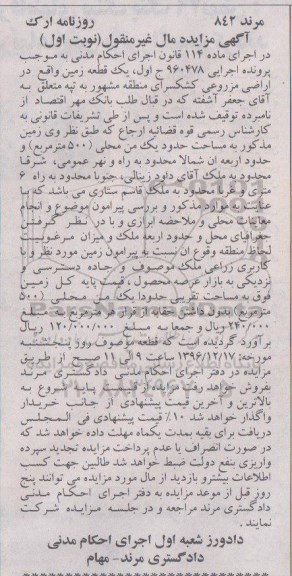 مرند ۸۴۲ روزنامه ارک
آگهی مزایده مال غیرمنقول(نوبت اول)
در اجرای ماده ۱۱۴ قانون اجرای احکام مدنی به موجب
پرونده اجرایی ۹۶۰۴۷۸ ج اول، یک قطعه زمین واقع در
اراضی مزروعی کشکسرای منطقه مشهور به تپه متعلق به
آقای جعفر آشفته که در قبال طلب بانک مهر اقتصاد از
نامبرده توقیف شده است و پس از طی تشریفات قانونی به
کارشناس رسمی قوه قضائیه ارجاع که طبق نظر وی زمین
مذکور به مساحت حدود یک من محلی (۵۰۰ مترمربع) و
حدود اربعه آن شمالا محدود به راه و نهر عمومی، شرقا
محدود به ملک آقای داود زینالی، جنوبا محدود به راه ۶
متری و غربا محدود به ملک قاسم ستاری می باشد که با
عنایت به موارد مذکور و بررسی پیرامون موضوع و انجام
معاینات محلی و ملاحضه ابرازی و با در نظر گرفتن
جغرافیای محل و حدود اربعه ملک و میزان مرغوبیت
لحاظ منطقه وقوع آن نسبت به پیرامون زمین مورد نظر و با
کاربری زراعی ملک موصوف و جاده دسترسی و
نزدیکی به بازار عرضه محصول، قیمت پایه کل زمین
فوق به مساحت تقریبی حدودا یک من محلی (۵۰۰
مترمربع) بدون داشتن حقابه از قرار هر مترمربع به مبلغ
۲۴۰/۰۰۰ ریال و جمعا به مبلغ ۱۲۰/۰۰۰/۰۰۰ ریال
برآورد گردیده است که قطعه موصوف روز پنجشنبه
مورخه: ۱۳۹۶/۱۲/۱۷ ساعت ۹ الی ۱۱ صبح از طریق
مزایده در دفتر اجرای احکام مدنی دادگستری مرند
بفروش خواهد رفت مزایده از قیمت پایه شروع به
بالاترین و آخرین قیمت پیشنهادی از جانب خریدار
واگذار خواهد شد ۱۰٪ قیمت پیشنهادی فی المجلس
دریافت برای بقیه بمدت یکماه مهلت داده خواهد شد که
در صورت انصراف یا عدم پرداخت مزایده تجدید سپرده
واریزی بنفع دولت ضبط خواهد شد طالبین جهت کسب
اطلاعات بیشترو بازدید از مال مورد مزایده می توانند پنج
روز قبل از موعد مزایده به دفتر اجرای احکام مدنی
دادگستری مرند مراجعه و در جلسه مزایده شرکت
نمایند.
دادورز شعبه اول اجرای احکام مدنی
دادگستری مرند- مهام